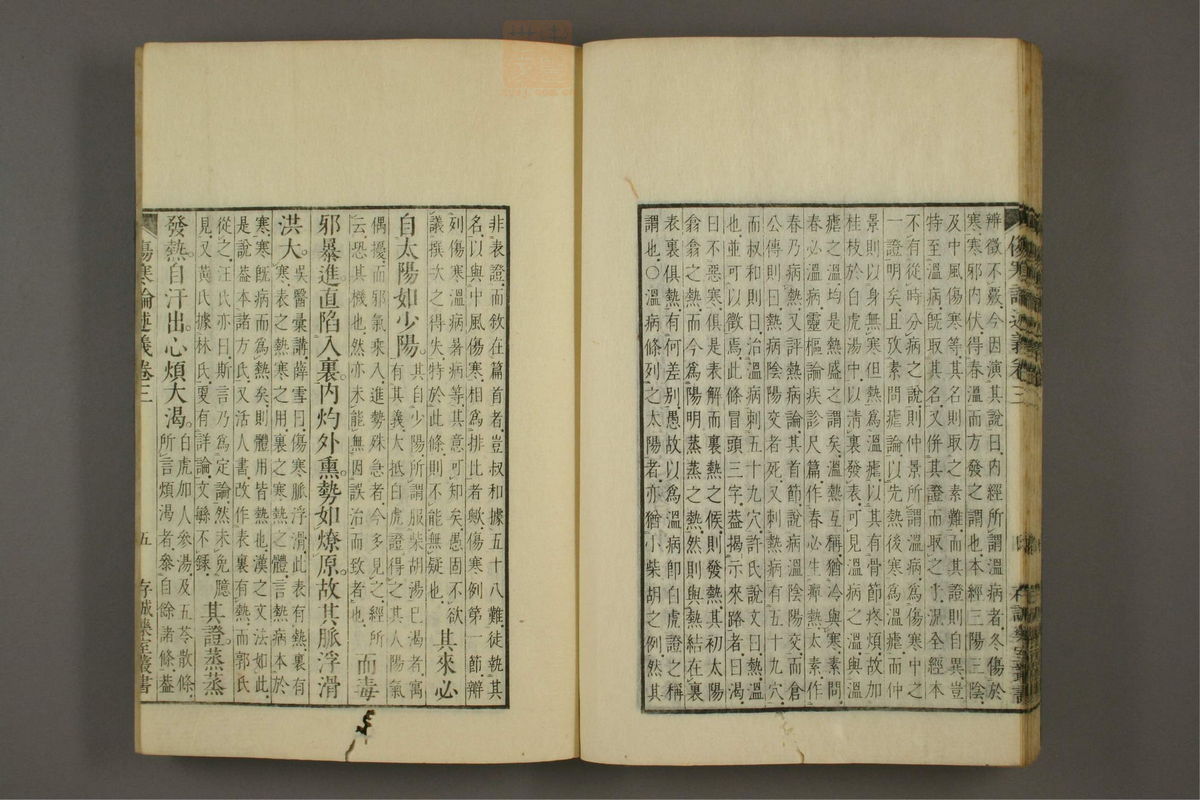 辨徵不覈今因演其說曰內經所謂溫病者冬傷於
寒寒邪內伏得春溫而方發之謂也本經三陽三陰
及中風傷寒等其名則取之素難而其證則自異豈
特至溫病既取其名又併其證而取之乎況全經本
不有從時分病之說則仲景所謂溫病為傷寒中之
一證明矣且攷素問瘧論以先熱後寒為溫瘧而仲
景則以身無寒但熱為溫瘧以其有骨節疼煩故加
桂枝於白虎湯中以清裏發表可見溫病之溫與溫
瘧之溫均是熱盛之謂矣溫熱互稱猶冷與寒素問
春必溫病靈樞論疾診尺篇作春必生癉熱太素作
春乃病熱又評熱病論其首節說病溫陰陽交而倉
公傳則曰熱病陰陽交者死又刺熱病有五十九穴
而叔和則曰治溫病刺五十九穴許氏說文曰熱溫
也並可以徵焉此條冒頭三字葢揭示來路者曰渴
曰不惡寒俱是表解而裏熱之候則發熱其初太陽
翕翕之熱而今為陽明蒸蒸之熱然則與熱結在裏
表裏俱熱有何差別愚故以為溫病卽白虎證之稱
謂也○溫病條列之太陽者亦猶小柴胡之例然其
非表證而敘在篇首者豈叔和據五十八難徒執其
名以與中風傷寒相為排比者歟傷寒例第一節辨
列傷寒溫病暑病等其意可知矣愚固不欲
議撰次之得失特於此條則不能無疑也其來必
自太陽如少陽其自少陽所謂服柴胡湯巳渴者寓有其義大抵白虎證得之其人陽氣
偶擾而邪氣乘入進勢殊急者今多見之經所
云恐其機也然亦未能無因誤治而致者也而毒
邪暴進直陷入裏內灼外熏勢如燎原故其脈浮滑
洪大吳醫彙講薛雪曰傷寒脈浮滑此表有熱裏有寒表之熱寒之用裏之寒熱之體言熱病本於
寒寒旣病而為熱矣則體用皆熱也漢之文法如此
是說葢本諸方氏又活人書改作表裏有熱而郭氏
從之汪氏亦曰斯言乃為定論然未免臆
見又黃氏據林氏更有詳論文緐不錄其證蒸蒸
發熱自汗出心煩大渴白虎加人參湯及五苓散條所言煩渴者參自餘諸條葢
傷寒論述義卷三
五
存誠藥室叢書